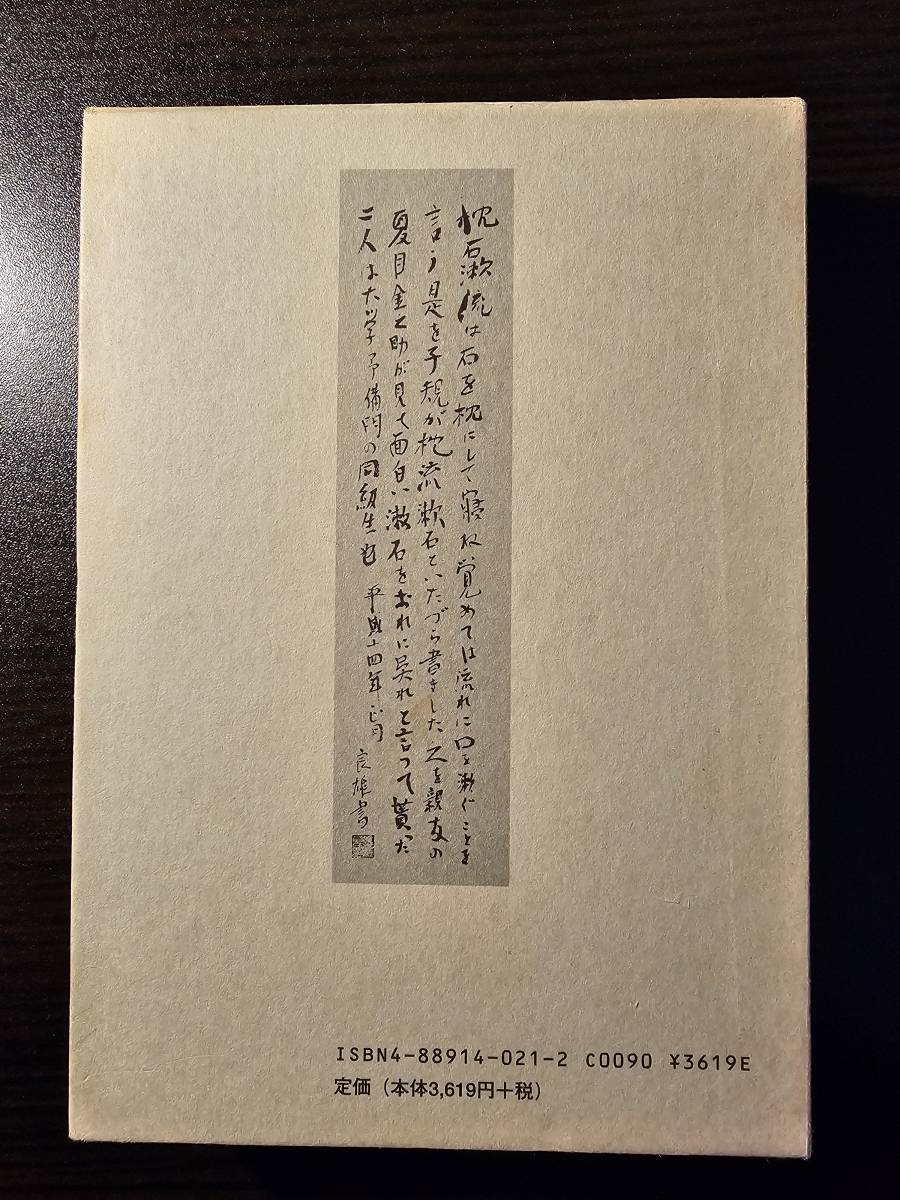 枕石漱流は石を枕にして寝ね覚めては流れに口を漱ぐことを
言う是を子規が枕流漱石といたづら書きした之を親友の
夏目金之助が見て面白い漱石をおれに呉れと言って貰った
二人は大学予備門の同級生也 平成十四年正月 良雄書
ISBN4-88914-021-2 C0090 ¥3619E
定価（本体3,619円＋税）